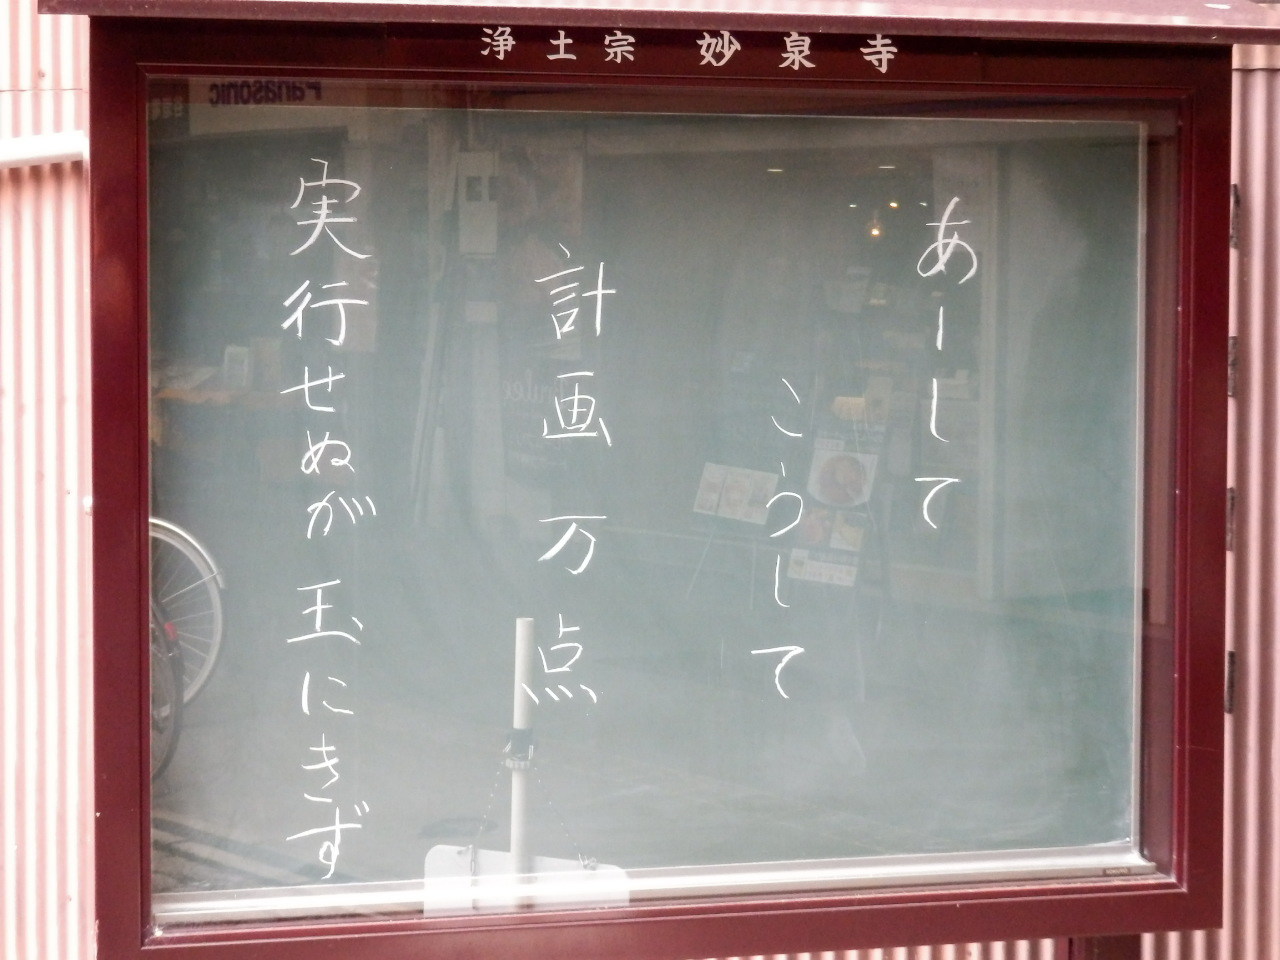 浄土宗 妙泉寺
あーして
こうして
計画万点
実行せぬが玉にきず
Panasonic